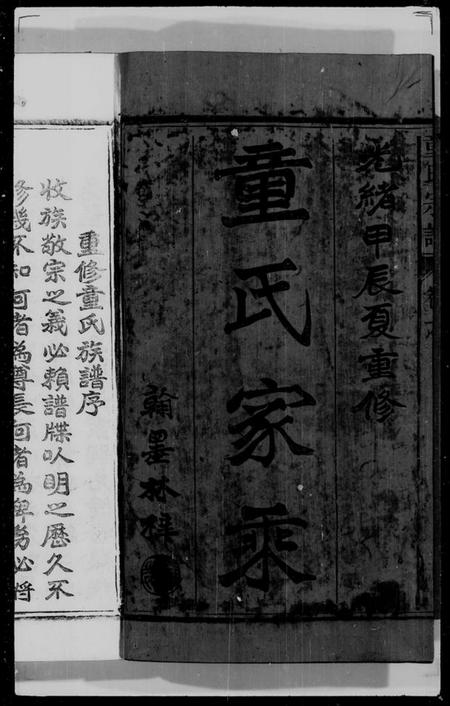 光緒甲辰夏重修
童氏家乘
翰墨林梓
重修童氏族譜序
收族敬宗之義必賴譜牒以明之歷久不
修幾不知何者為尊長何者為卑勞必將